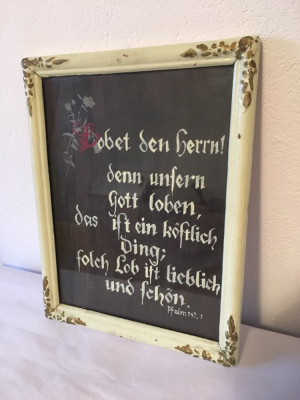 Lobet den Herrn!
denn unsern
Gott loben,
das ist ein köstlich
Ding;
solch Lob ist lieblich
und schön.
Psalm 147, 1